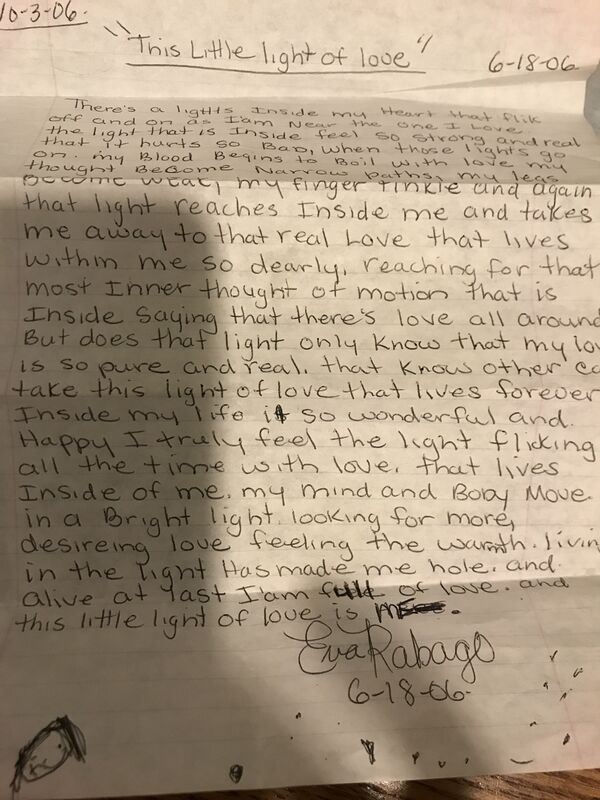 10-3-06.
"This Little light of love"
6-18-06
There's a lights Inside my Heart that flik
off and on as I'am Near the one I Love.
the light that is Inside feel so strong and real
that it hurts so Bad, when those lights go
on. my Blood Begins to Boil with love my
thought Become Narrow paths, my legs
Become weak, my finger tinkle and again
that light reaches Inside me and takes
me away to that real Love that lives
within me so dearly, reaching for that
most Inner thought of motion that is
Inside saying that there's love all around
But does that light only know that my lov
is so pure and real. that know other ca
take this light of love that lives forever
Inside my life is so wonderful and.
Happy I truly feel the light flicking
all the time with love. that lives
Inside of me. my mind and Body Move
in a Bright light. looking for more,
desireing love feeling the warmth. livin
in the light Has made me hole. and
alive at last I'am full of love. and
this little light of love is me.
Eva Rabago
6-18-06